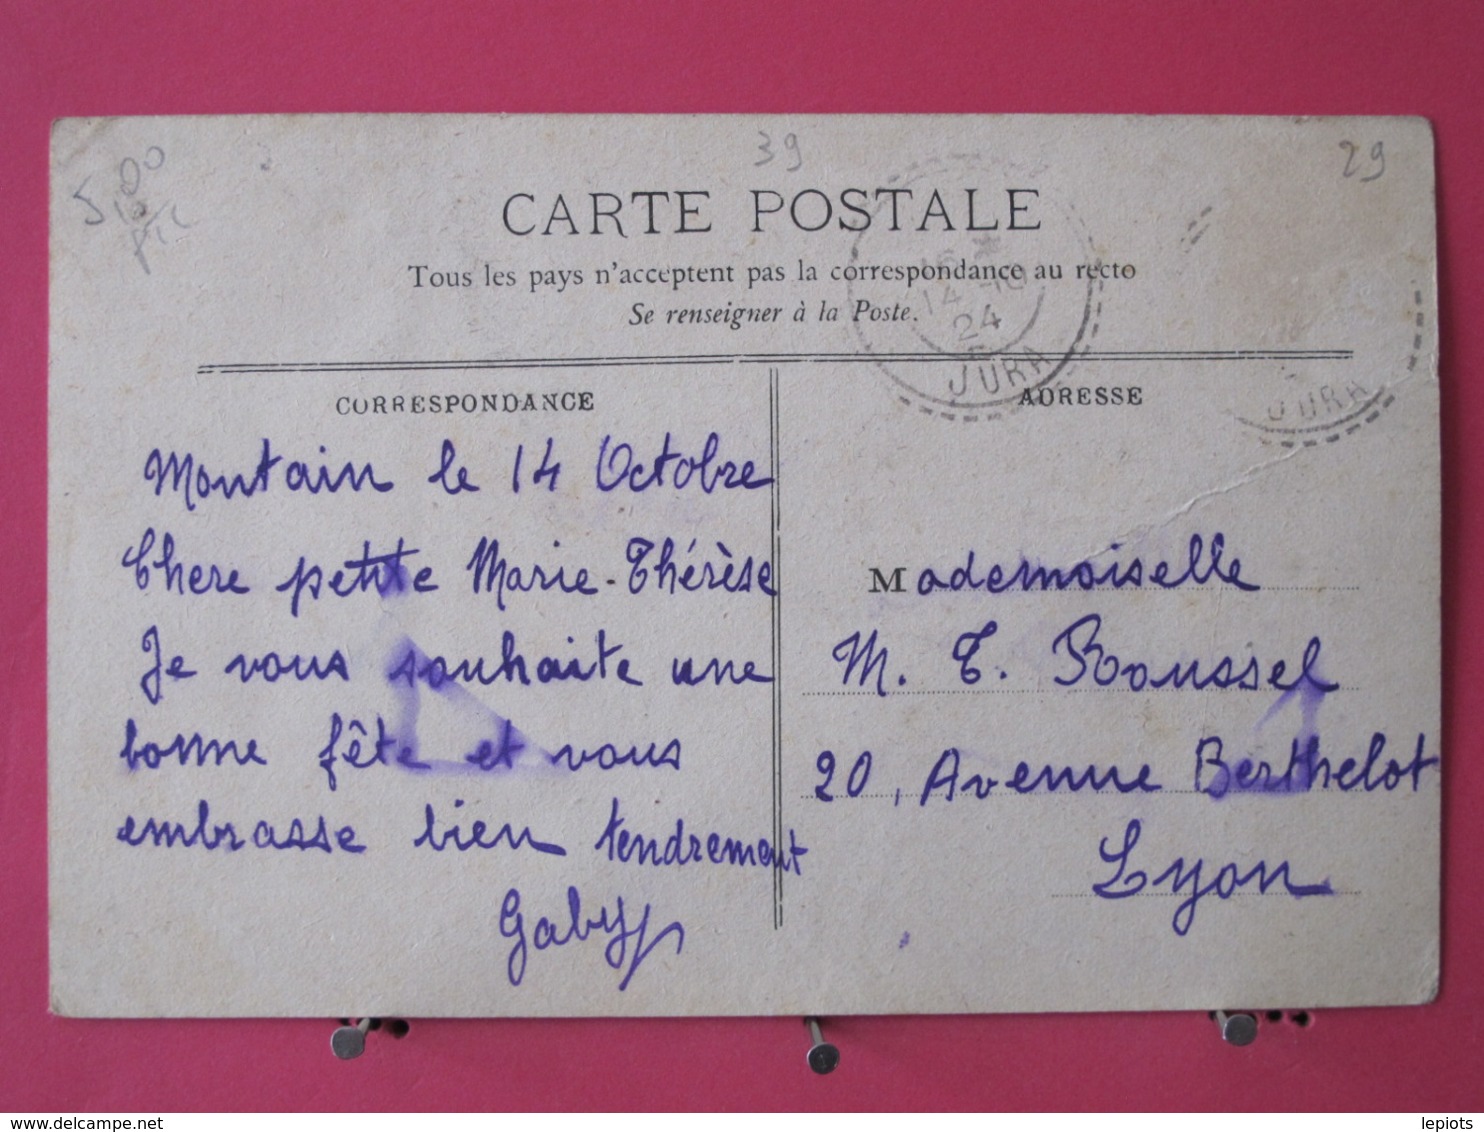 5,00
39
29
CARTE POSTALE
Tous les pays n'acceptent pas la correspondance au recto
Se renseigner à la Poste.
16 *
14 -10
24
JURA
JURA
CORRESPONDANCE
Montain le 14 Octobre
Chere petite Marie-Thérèse
Je vous souhaite une
bonne fête et vous
embrasse bien tendrement
Gaby
ADRESSE
Mademoiselle
M. T. Roussel
20, Avenue Berthelot
Lyon
delcampe.net
lepiots